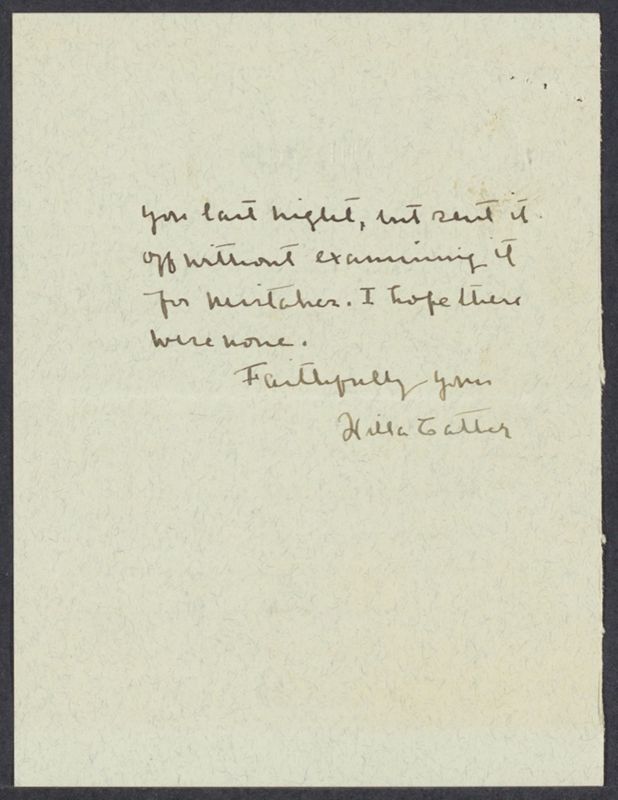 you last night, but sent it
off without examining it
for mistakes. I hope there
were none.
Faithfully yours
Willa Cather